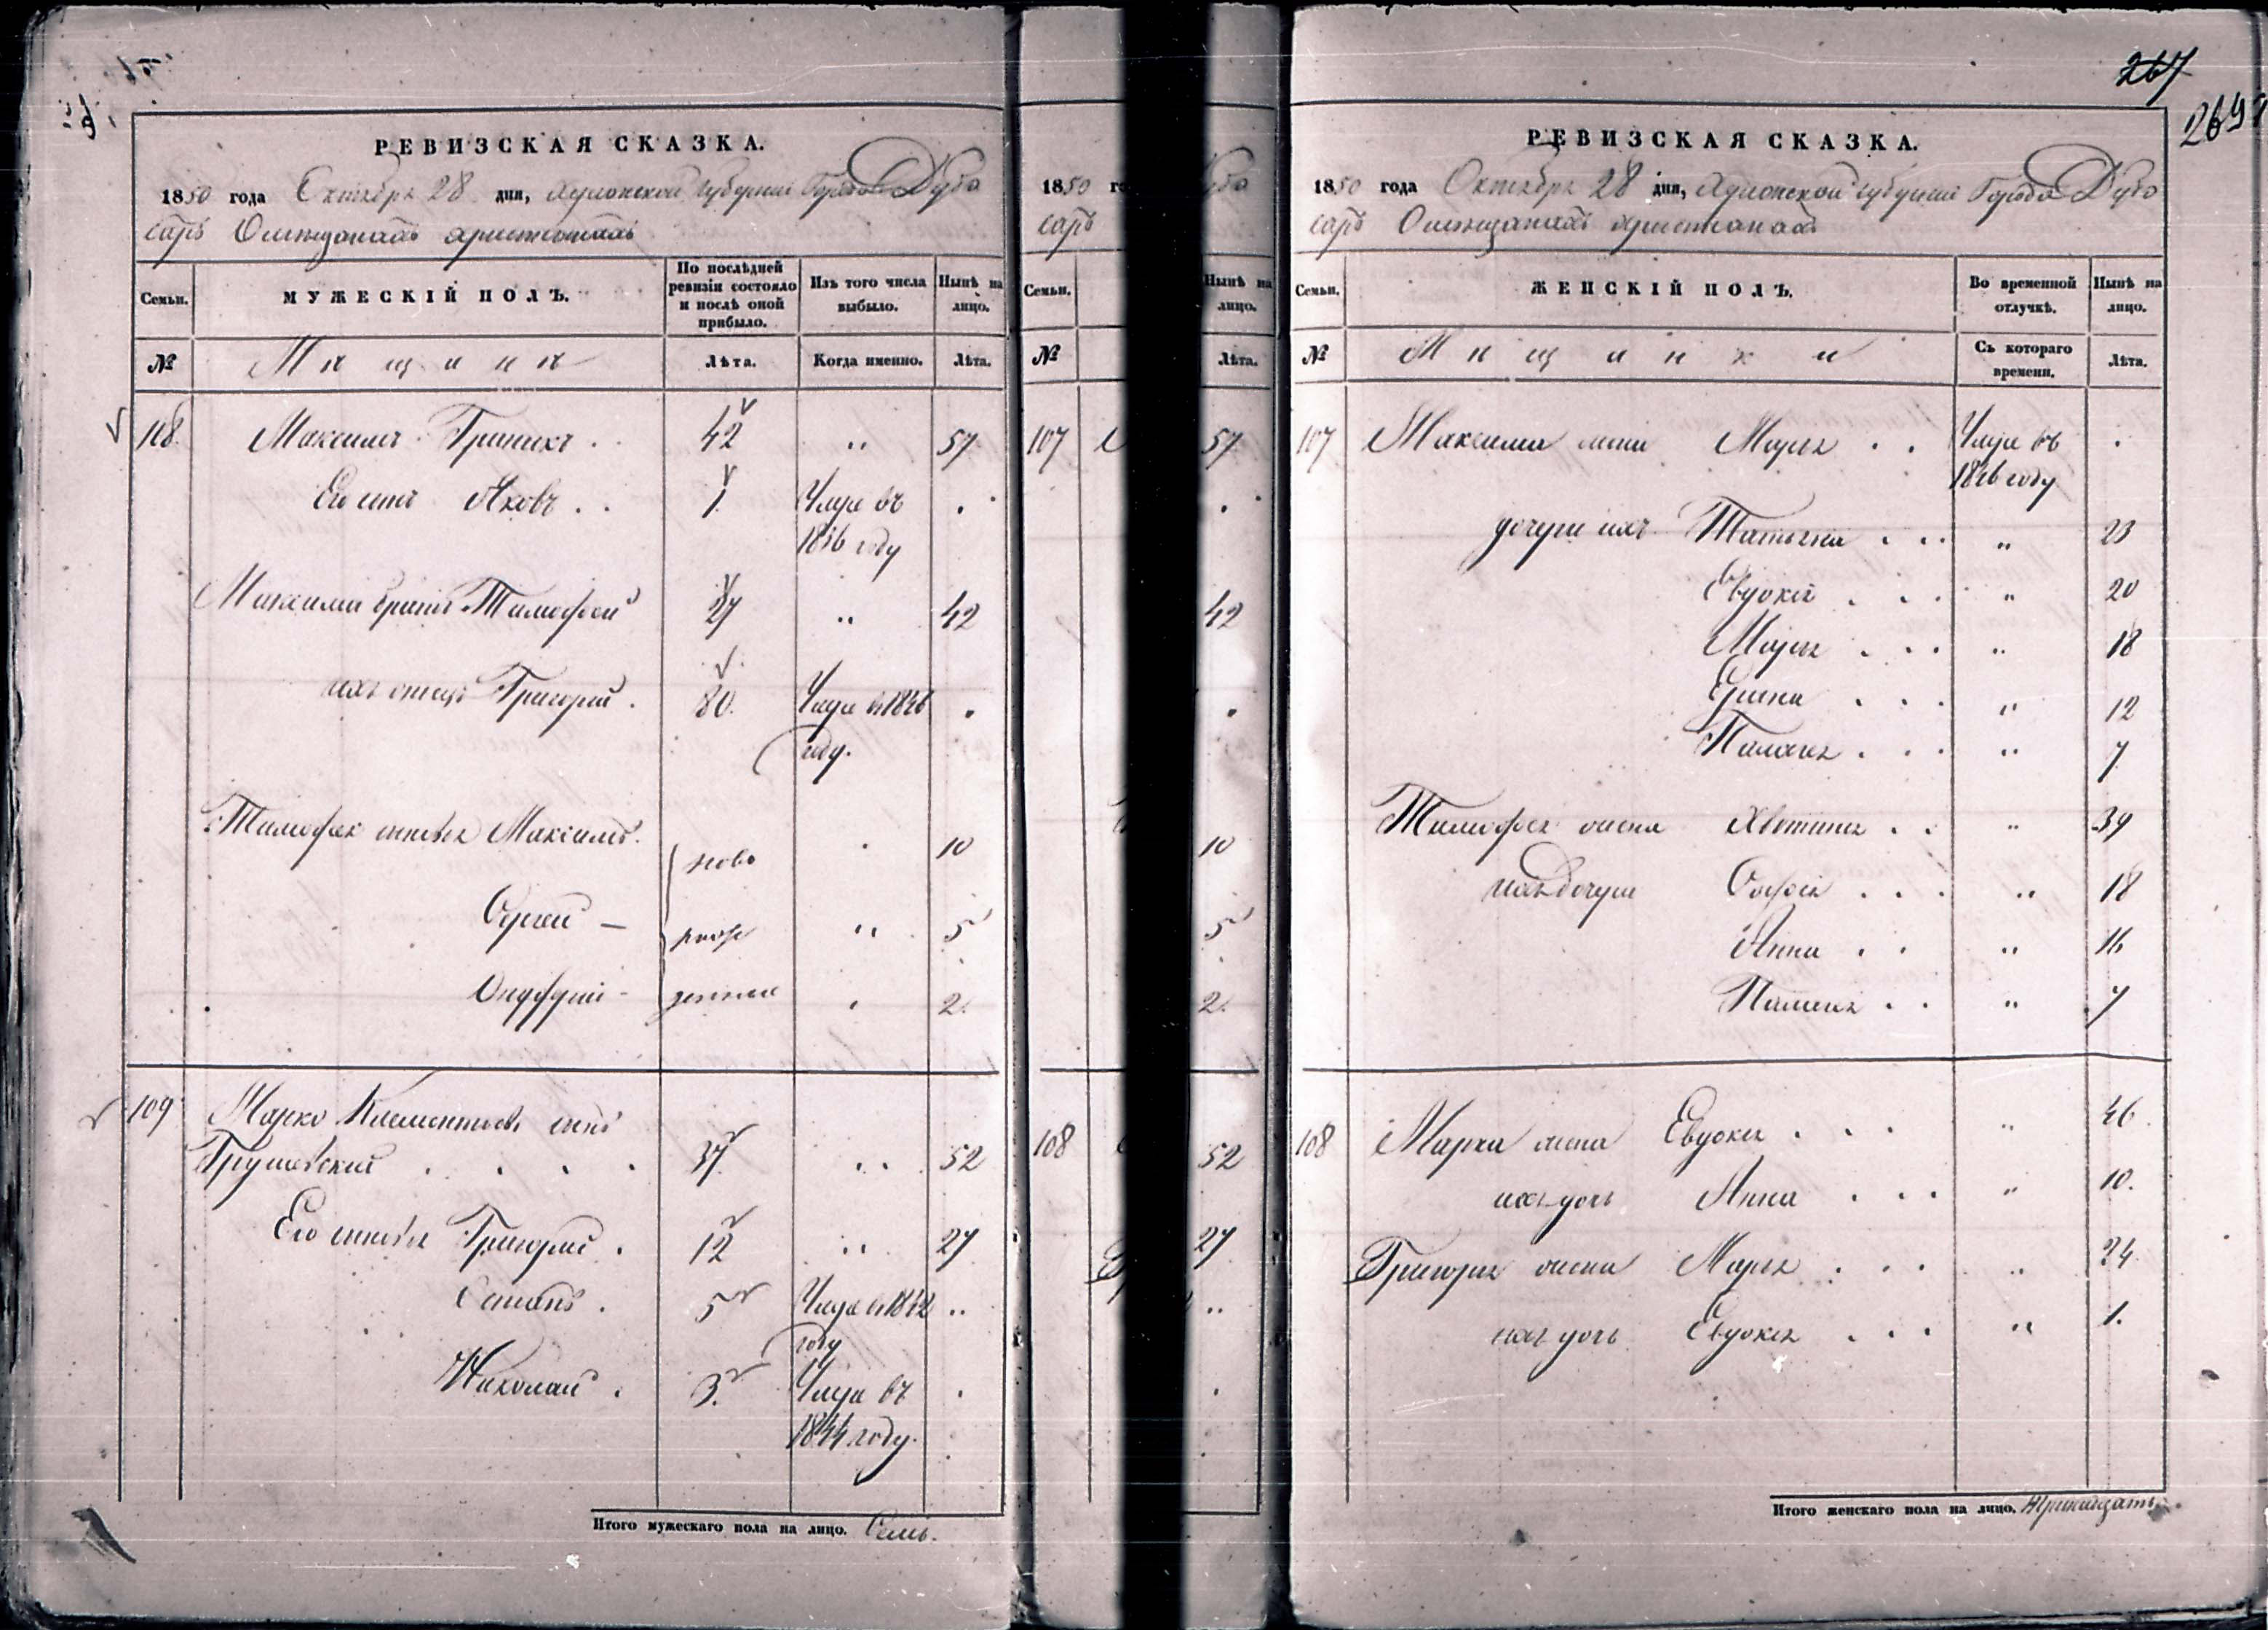 267
269
РЕВИЗСКАЯ СКАЗКА.
1850 года Октября 28 дня, Херсонской Губернии Города Дубо
саръ О мещанахъ христианахъ
Семьи. МУЖЕСКІЙ ПОЛЪ. По послѣдней ревизіи состояло и послѣ оной прибыло. Изъ того числа выбыло. Нынѣ на лицо.
№ Мѣщане Лѣта. Когда именно. Лѣта.
108 Максимъ 42 " 57
Его сынъ Яковъ 1 Умре въ 1836 году
Максима братъ Тимофей 27 " 42
ихъ отецъ Григорий 80 Умре въ 1846 году.
Тимофея сыновья Максимъ ново 10
Сергей рож " 5
Онуфрий денные 2
109 Марко Клементьевъ сынъ
Грушевский 37 " 52
Его сыновья Григорий 12 " 27
Степанъ 5 Умре въ 1842 году "
Николай 3 Умре въ 1844 году.
Итого мужескаго пола на лицо. Семь.
1850 го
саръ
Семьи.
№
107
108
убо
Нынѣ на лицо.
Лѣта.
57
42
10
5
2
52
27
РЕВИЗСКАЯ СКАЗКА.
1850 года Октября 28 дня, Херсонской Губернии Города Дубо
саръ О мещанахъ христианахъ
Семьи. ЖЕНСКІЙ ПОЛЪ. Во временной отлучкѣ. Нынѣ на лицо.
№ Мѣщанки Съ котораго времени. Лѣта.
107 Максима жена Марья Умре въ 1846 году
дочери ихъ Татьяна " 23
Евдокия " 20
Марья " 18
Ирина " 12
Палагея " 7
Тимофея жена " 39
ихъ дочери Софья " 18
Анна " 16
Палагея " 7
108 Марка жена Евдокия " 46
ихъ дочь Анна " 10.
Григория жена Марья " 24
ихъ дочь Евдокия " 1.
Итого женскаго пола на лицо. Тринадцать